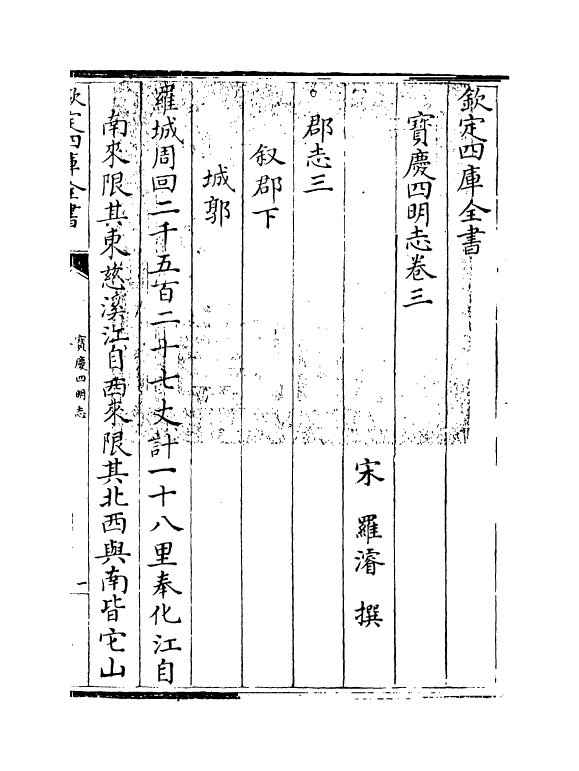 欽定四庫全書
寳慶四明志卷三
宋 羅濬 撰
郡志三
叙郡下
城郭
羅城周回二千五百二十七丈計一十八里奉化江自
南來限其東慈溪江自西來限其北西與南皆它山
欽定四庫全書
寳慶四明志
一